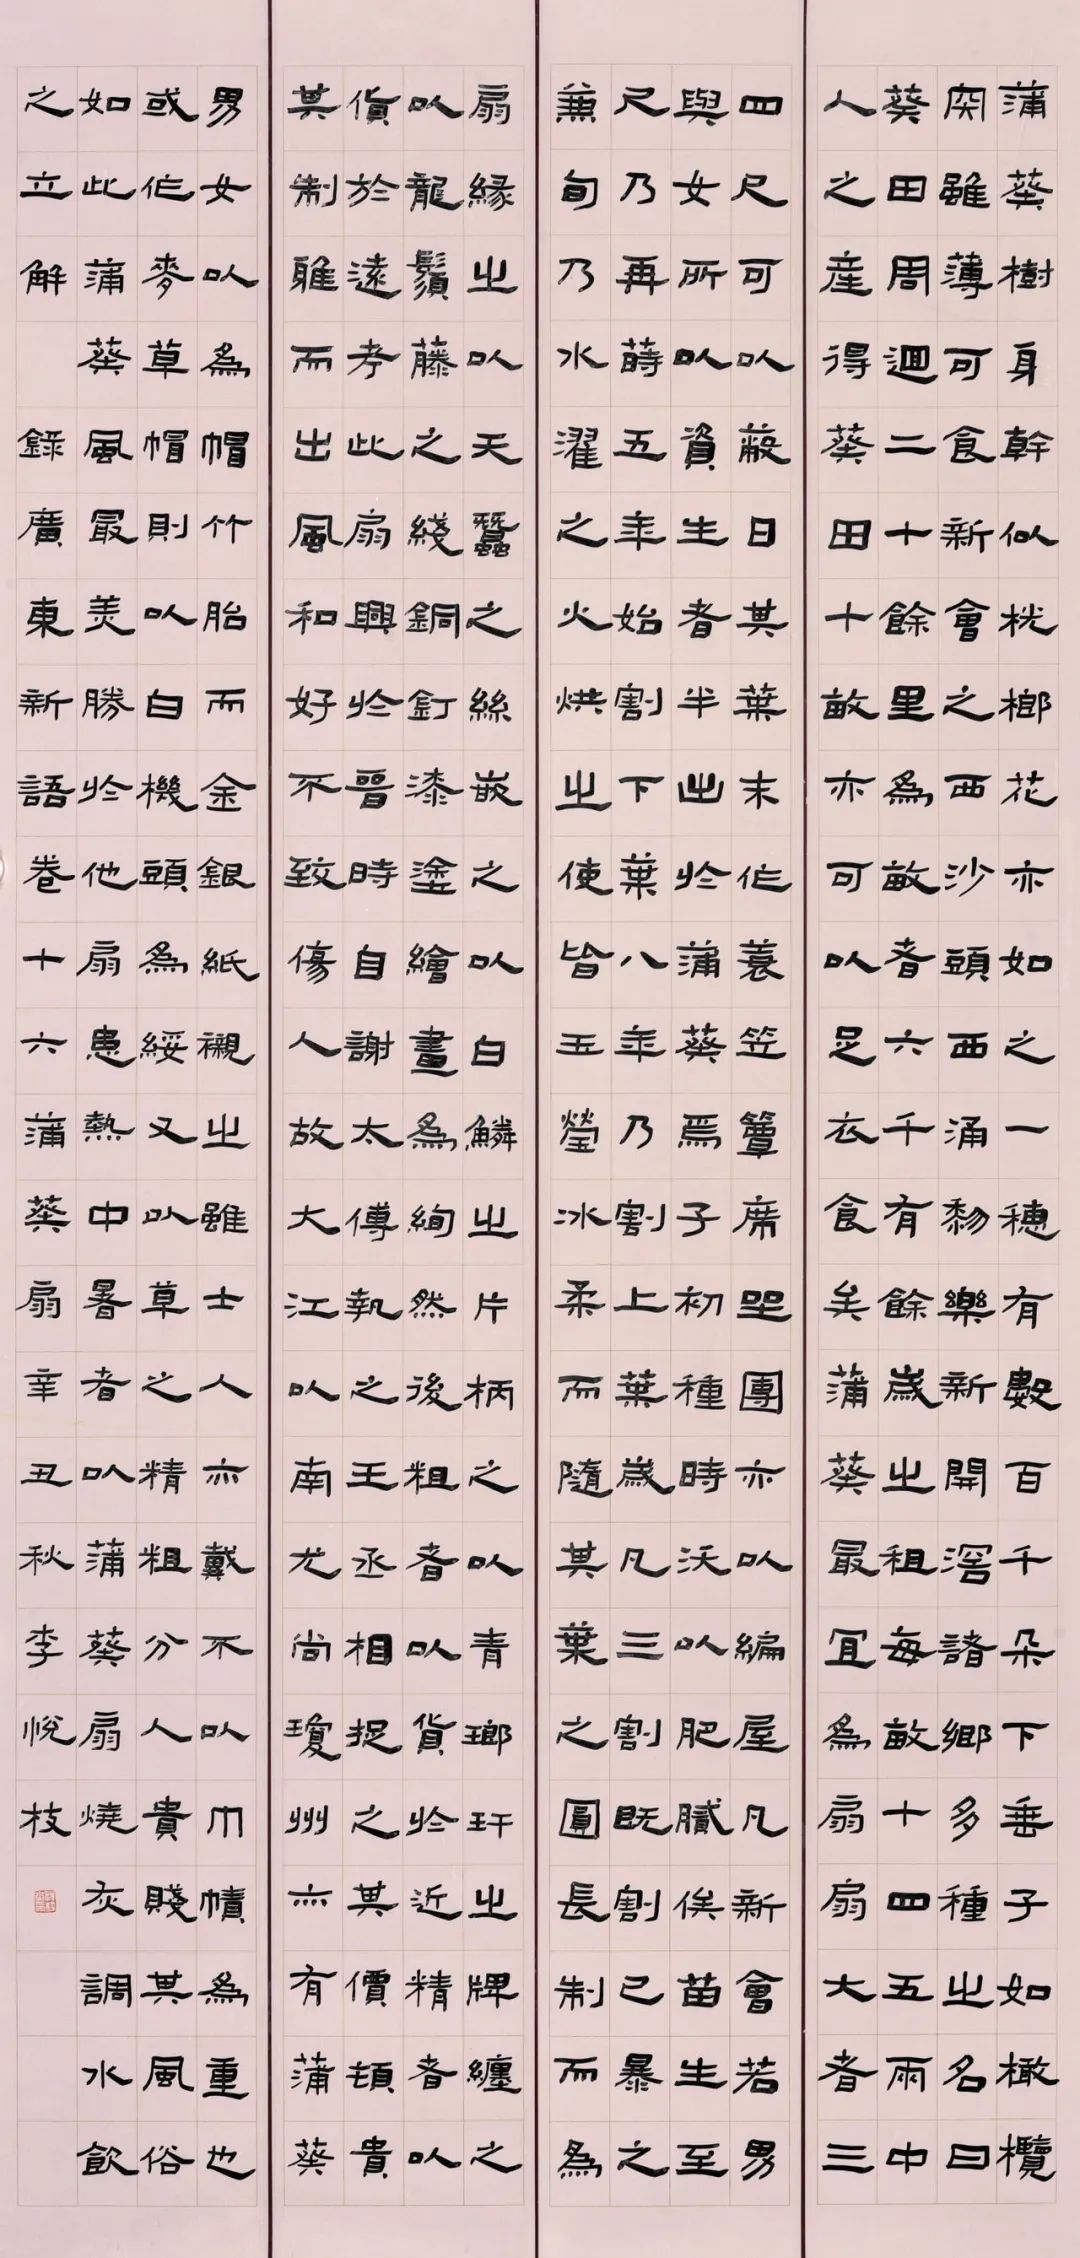 蒲葵樹身幹似桄榔花亦如之一穗有數百千朵下垂子如橄欖
肉雖薄可食新會之西沙頭西涌黎樂新開滘諸鄉多種之名曰
葵田周迴二十餘里為畝者六千有餘歲之租每畝十四五兩中
人之產得葵田十畝亦可以足衣食矣蒲葵最宜為扇扇大者三
四尺可以蔽日其葉末作蓑笠簟席坐團亦以編屋凡新會若男
與女所以資生者半出於蒲葵焉子初種時沃以肥膩俟苗生至
尺乃再蒔五年始割下葉八年乃割上葉歲凡三割既割已暴之
兼旬乃水濯之火烘之使皆玉瑩冰柔而隨其葉之圓長制而為
扇緣之以天蠶之絲嵌之以白鱗之片柄之以青瑯玕之牌纏之
以龍鬚藤之綫銅釘漆塗繪畫為絢然後粗者以貨於近精者以
貨於遠考此扇興於晉時自謝太傅執之王丞相捉之其價頓貴
其制雖而出風和好不致傷人故大江以南尤尚瓊州亦有蒲葵
男女以為帽竹胎而金銀紙襯之雖士人亦戴不以巾幘為重也
或作麥草帽則以白機頭為綏又以草之精粗分人貴賤其風俗
如此蒲葵風最美勝於他扇患熱中暑者以蒲葵扇燒灰調水飲
之立解 錄廣東新語卷十六蒲葵扇辛丑秋李悅枝